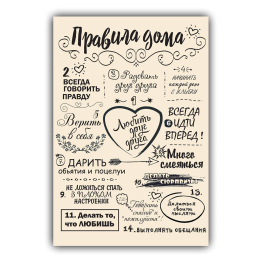 Правила дома
2 ВСЕГДА
ГОВОРИТЬ
ПРАВДУ
3 Радовать
друг друга
начинать
каждый день
с улыбки
5 Верить
в себя
Любить
друг
друга
ВСЕГДА
ИДИ
ВПЕРЁД!
7 ДАРИТЬ
объятия и поцелуи
Много
смеяться
9 НЕ ЛОЖИТЬСЯ СПАТЬ
В ПЛОХОМ
НАСТРОЕНИИ
10 делать
СЮРПРИЗЫ
11. Делать то,
что ЛЮБИШЬ
Говорить
спасибо и
пожалуйста
13.
Делиться
своими
мыслями
14. ВЫПОЛНЯТЬ ОБЕЩАНИЯ